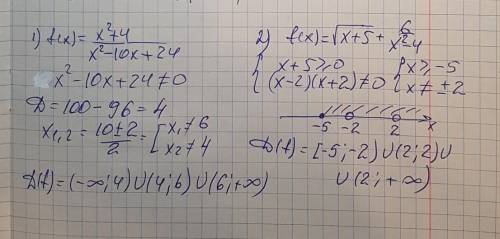 1) f(x) = x²+4 / x²-10x+24
x²-10x+24≠0
D = 100 - 96 = 4
x₁,₂ = 10±2 / 2 = [ x₁≠6 x₂≠4
D(f) = (-∞; 4) ∪ (4; 6) ∪ (6; +∞)
2) f(x) = √x+5 + 6 / x²-4
{ x+5≥0 { x≥-5
(x-2)(x+2)≠0 x≠±2
-5 -2 2 x
D(f) = [-5; -2) ∪ (2; 2) ∪
∪ (2; +∞)